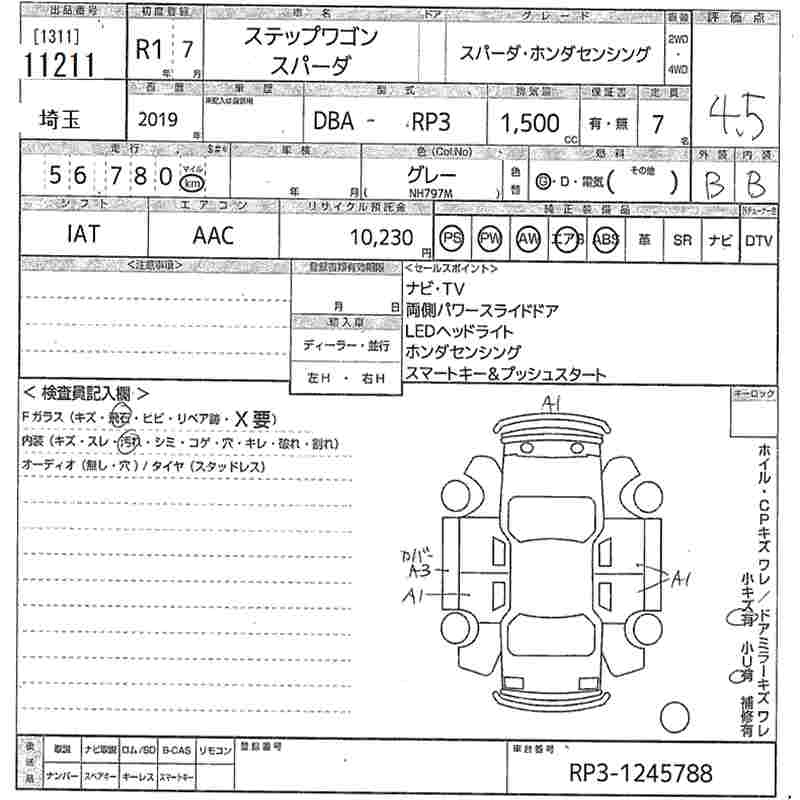 出品番号 初度登録 車名 ドア グレード 駆動 評価点
[1311]
11211
R1 7
年 月
ステップワゴン
スパーダ
スパーダ・ホンダセンシング
2WD
・
4WD
西暦 車歴 型式 排気量 保証書 定員
※記入は自家用
埼玉
2019 年
DBA - RP3
1,500 CC
有・無
7 名
4.5
走行 車検 色(Col.No) 燃料 外装 内装
56,780
マイル
km
年 月
グレー
( NH797M )
色替
G・D・電気( その他 )
B B
シフト エアコン リサイクル預託金 純正装備品
IAT AAC 10,230 円
PS PW AW エアB ABS 革 SR ナビ DTV
<注意事項> 登録書類有効期限 <セールスポイント>
月 日
輸入車
ディーラー・並行
左H ・ 右H
ナビ・TV
両側パワースライドドア
LEDヘッドライト
ホンダセンシング
スマートキー&プッシュスタート
< 検査員記入欄 >
Fガラス(キズ・飛石・ヒビ・リペア跡・X要)
内装(キズ・スレ・汚れ・シミ・コゲ・穴・キレ・破れ・割れ)
オーディオ(無し・穴)/タイヤ(スタッドレス)
キーロック
A1
カバー
A3
A1
A1
ホイル・CPキズワレ/ドアミラーキズワレ
小キズ有 小U有 補修有
後送品
取説 ナビ取説 ロム/SD B-CAS リモコン
ナンバー スペアキー キーレス スマートキー
登録番号
車台番号
RP3-1245788